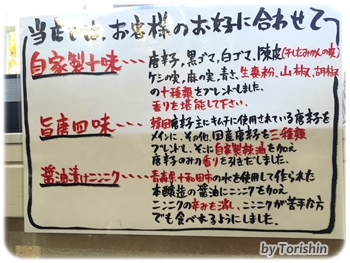 当店では、お客様のお好に合わせて〜
自家製十味・・・唐辛子、黒ゴマ、白ゴマ、陳皮(干したみかんの実)
ケシの実、麻の実、青さ、生姜粉、山椒、胡椒
の十種類をブレンドしました。
香りを堪能して下さい。
旨唐四味・・・韓国唐辛子主にキムチに使用されている唐辛子を
メインに、その他、国産唐辛子を三種類
ブレンドし、そこに自家製辣油を加え
唐辛子のみの香りを引きだしました。
醤油漬けニンニク・・・青森県十和田市の水を使用して作られた
本醸造の醤油にニンニクを加え
ニンニクの辛みを消し、ニンニクが苦手な方
でも食べれるようにしました。
by Torishin